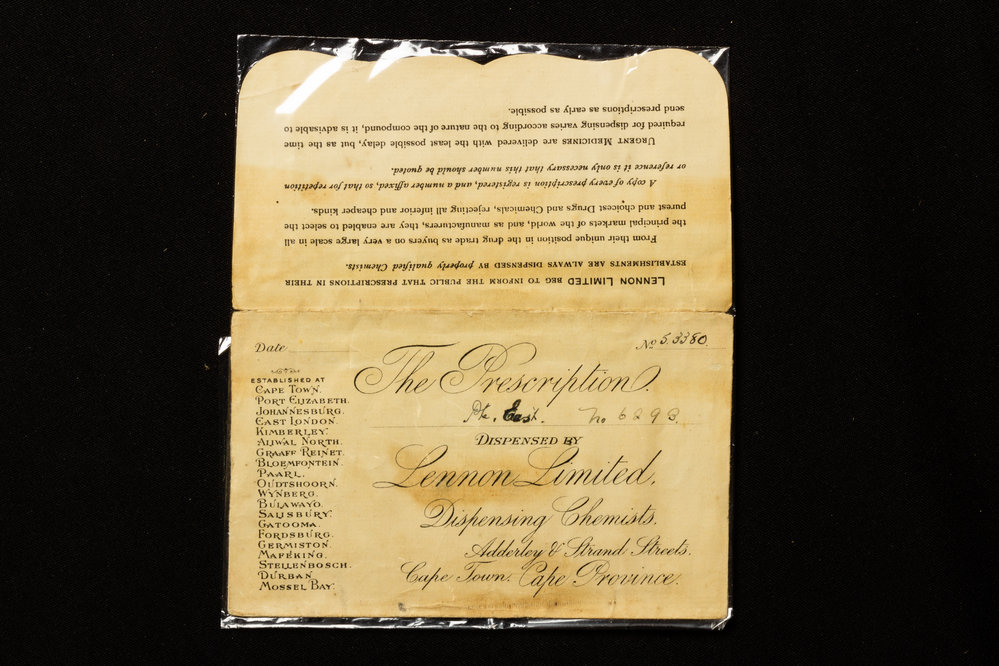 LENNON LIMITED BEG TO INFORM THE PUBLIC THAT PRESCRIPTIONS IN THEIR
ESTABLISHMENTS ARE ALWAYS DISPENSED BY properly qualified Chemists.
From their unique position in the drug trade as buyers on a very large scale in all
the principal markets of the world, and as manufacturers, they are enabled to select the
purest and choicest Drugs and Chemicals, rejecting all inferior and cheaper kinds.
A copy of every prescription is registered, and a number affixed, so that for repetition
or reference it is only necessary that this number should be quoted.
URGENT MEDICINES are delivered with the least possible delay, but as the time
required for dispensing varies according to the nature of the compound, it is advisable to
send prescriptions as early as possible.
Date
No 53380
The Prescription.
Pte. East. No 6293
DISPENSED BY
Lennon Limited.
Dispensing Chemists.
Adderley & Strand Streets.
Cape Town. Cape Province.
ESTABLISHED AT
CAPE TOWN.
PORT ELIZABETH.
JOHANNESBURG.
EAST LONDON.
KIMBERLEY.
ALIWAL NORTH.
GRAAFF REINET.
BLOEMFONTEIN.
PAARL.
OUDTSHOORN.
WYNBERG.
BULAWAYO.
SALISBURY.
GATOOMA.
FORDSBURG.
GERMISTON.
MAFEKING.
STELLENBOSCH.
DURBAN.
MOSSEL BAY.